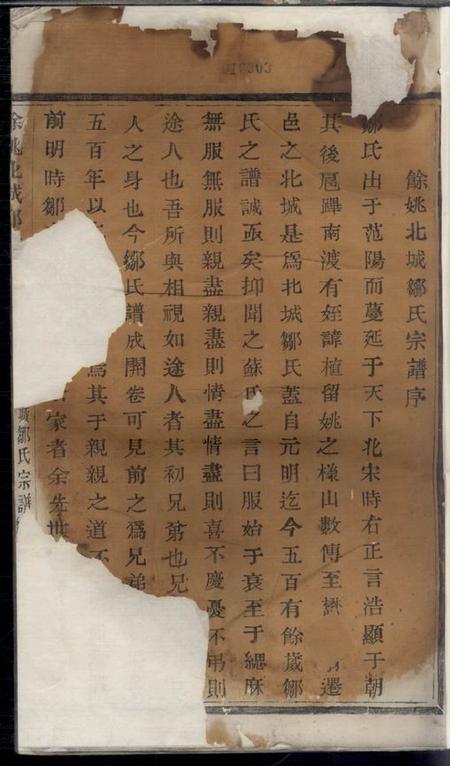 餘姚北城鄒氏宗譜序
鄒氏出于范陽而蔓延于天下北宋時右正言浩顯于朝
其後扈蹕南渡有姪諱植留姚之樣山數傳至 遷
邑之北城是爲北城鄒氏蓋自元明迄今五百有餘歲鄒
氏之譜誠亟矣抑聞之蘇氏之言曰服始于衰至于緦麻
無服無服則親盡親盡則情盡情盡則喜不慶憂不弔則
途人也吾所與相視如途人者其初兄弟也兄
人之身也今鄒氏譜成開卷可見前之爲兄弟
五百年以 爲其于親親之道不
前明時鄒 家者余先世
余姚北城鄒
城鄒氏宗譜